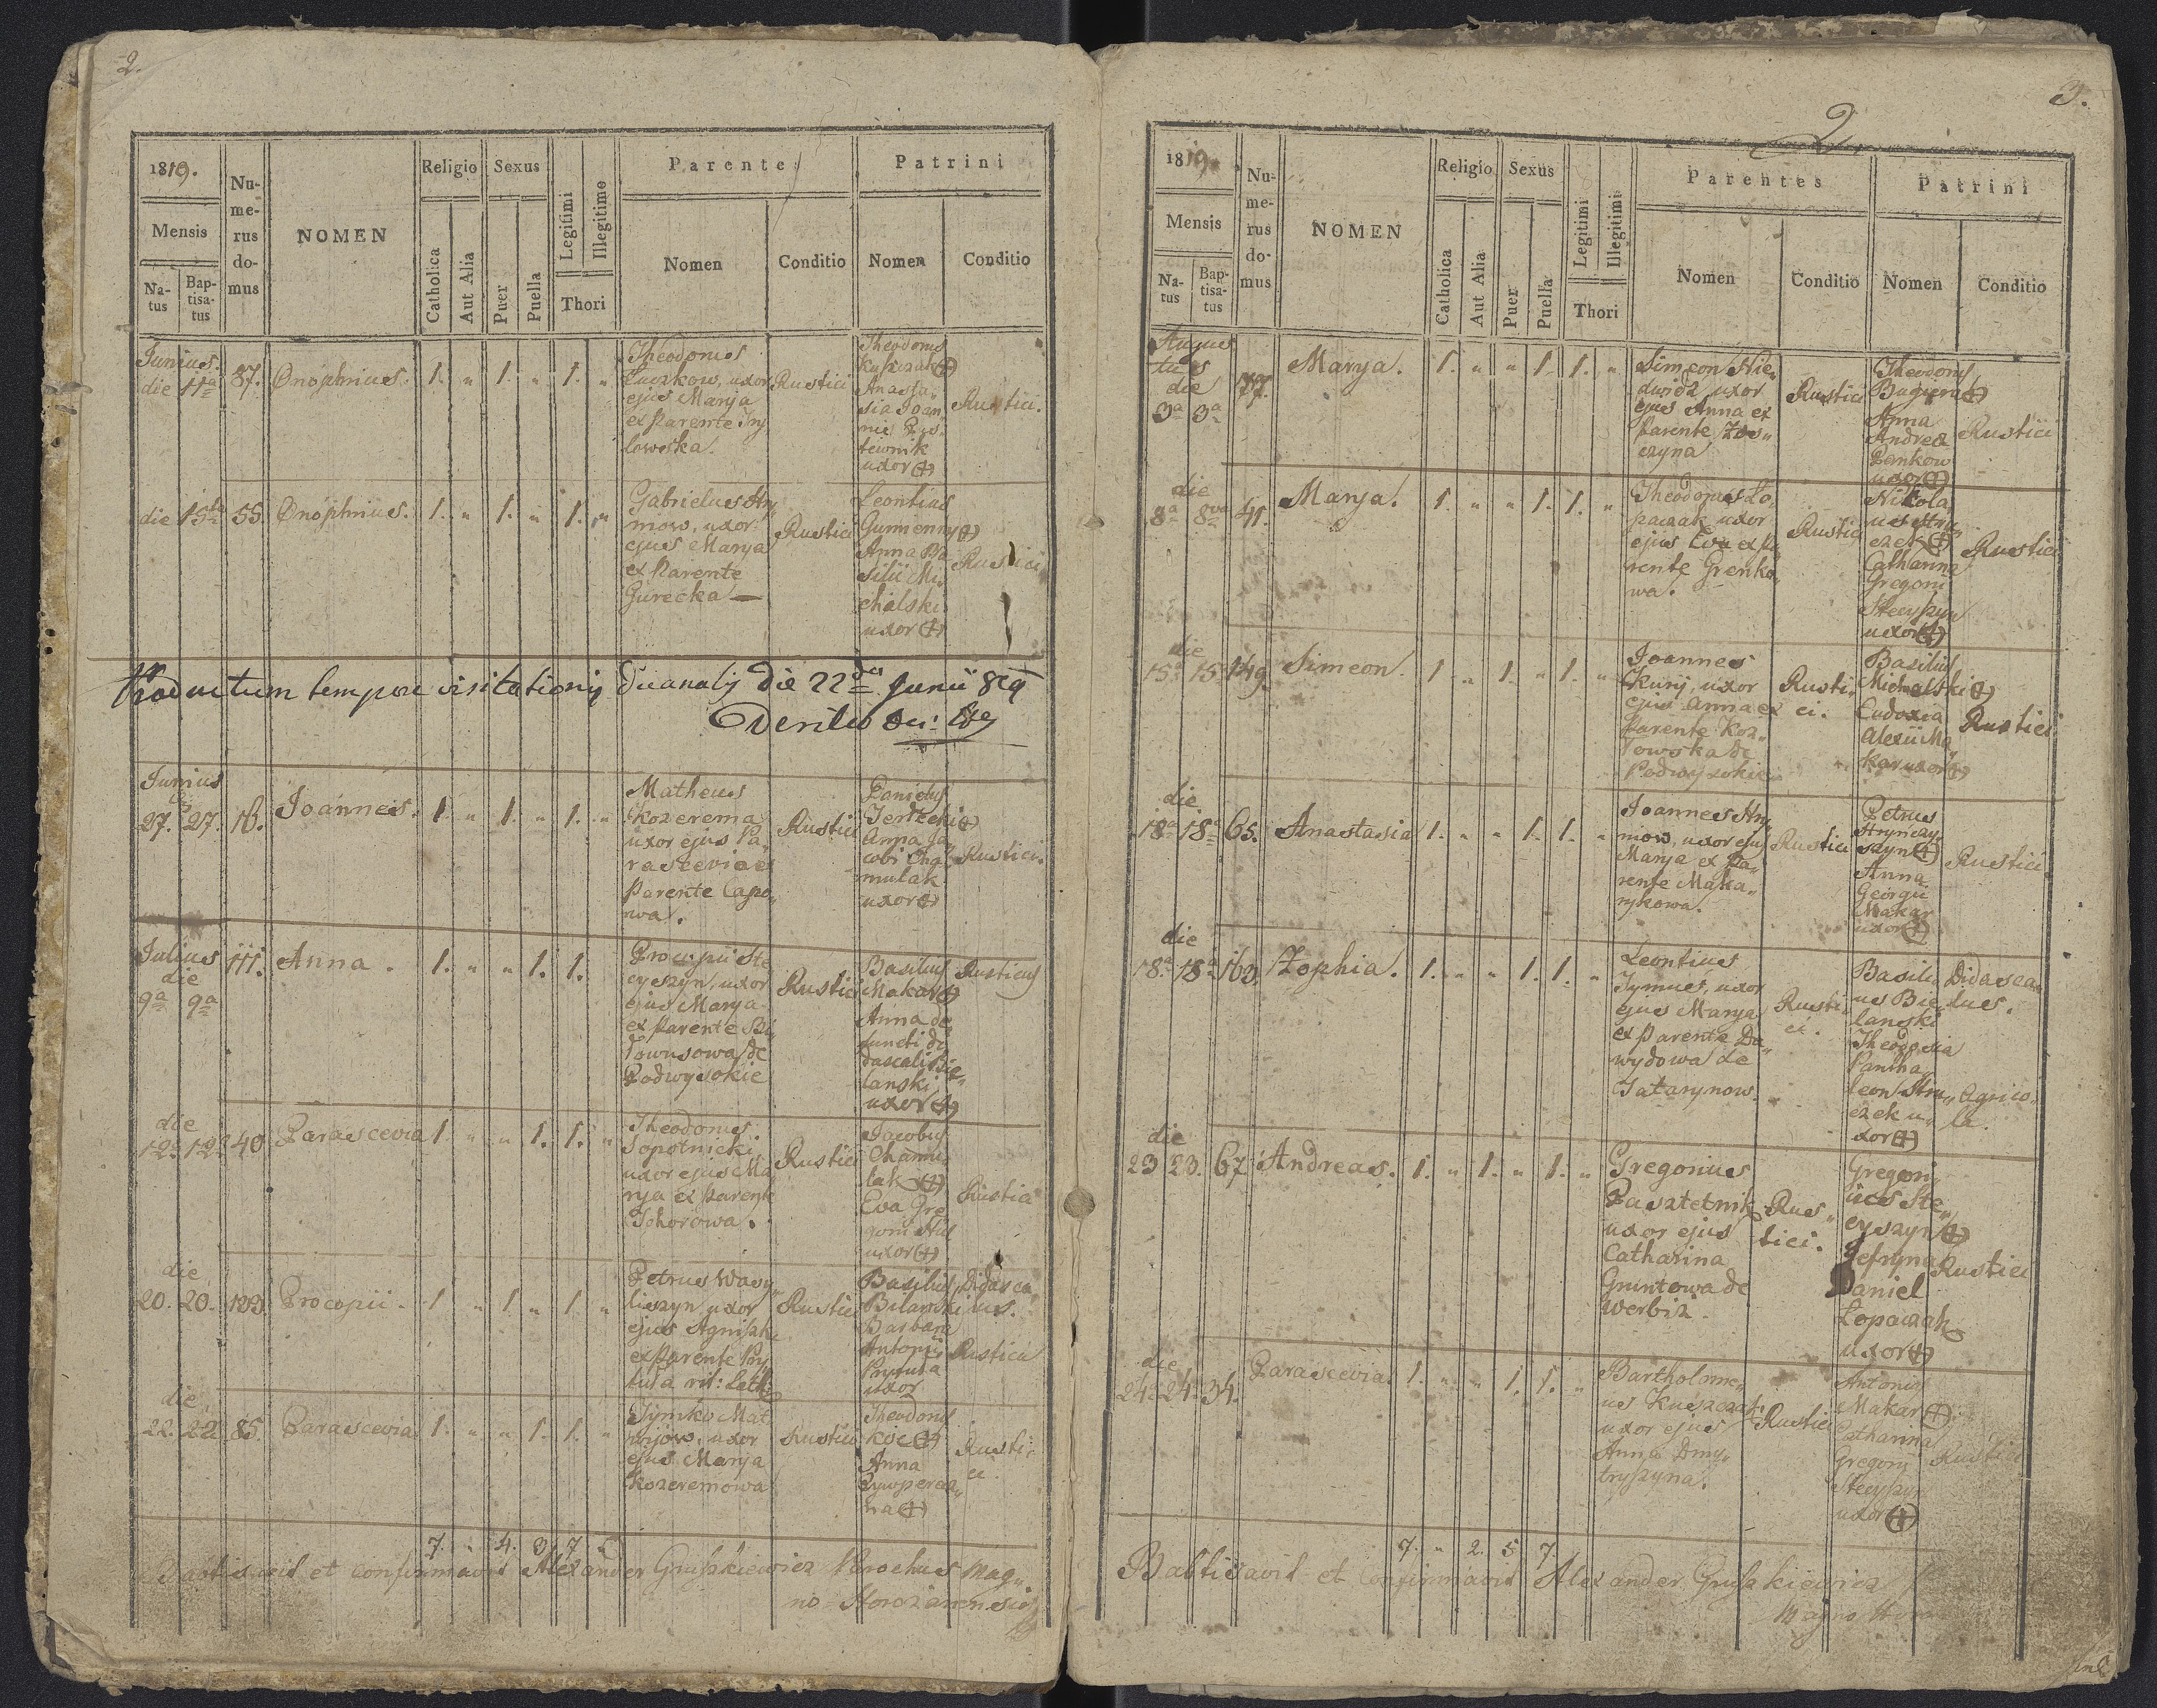 2.
1819.
Mensis
Na-
tus
Bap-
tisa-
tus
Nu-
me-
rus
do-
mus
NOMEN
Religio
Catholica
Aut Alia
Sexus
Puer
Puella
Legitimi
Illegitimo
Thori
Parentes
Nomen
Conditio
Patrini
Nomen
Conditio
Junius.
die 11a 87. Onophrius. 1. " 1. " 1. "
Theodorus
Luczkow, uxor
ejus Marya
ex Parente
lowska.
Rustici
Theodorus
Anasta,,
sia Joan
nis
uxor
Rustici.
die 13ta 55. Onophrius. 1. " 1. " 1. "
Gabrielus Hry
mow, uxor
ejus Marya
ex Parente
Gurecka
Rustici
Leontius
Gumenny
Anna Ba
silii Mi
chalski
uxor
Rustici
Productum tempore visitationis Decanalis die 22da Junii 819
Junius
27. 27. 16. Joannes. 1. " 1. " 1. "
Matheus
Kozerema
uxor ejus Pa,
rascevia ex
Parente Capo,
wa.
Rustici
Danielus
Anna Ja,
cobi Cha,
mulak
uxor
Rustici.
Julius
die
9a 9a 111. Anna. 1. " " 1. 1.
Procopii Ste
cyszyn, uxor
ejus Marya
ex Parente
de
Podwysokie
Rustici
Basilius
Makar
Anna de,
functi di
dascali Bie,,
lanski
uxor
Rusticus
die
12a 12a 40 Parascevia 1. " " 1. 1. "
Theodorus
Sopotnicki
uxor ejus Ma
rya ex parente
Tchorowa.
Rustici
Jacobus
Chamu,
lak
Eva Gre
gorii
uxor
Rustici
die
20. 20. 133. Procopii. 1. " 1. " 1. "
Petrus Wasy,,
liszyn uxor
ejus
ex Parente Pry
tula rit: Lath
Rustici
Basilius
Bilanski
Barbara
Antonii
Prytula
uxor
Didasca
lus.
Rustici
die
22. 22 85. Parascevia 1. " " 1. 1. "
Tymko Mat
wijow, uxor
ejus Marya
Kozeremowa
Rustici
Theodorus
Koc
Anna
Rusti,
ci
7. " 4. 3. 7. "
Baptisavit et confirmavit Alexander Gruszkiewicz Parochus Mag,,
no Horozanensis
3.
2
1819.
Mensis
Na-
tus
Bap-
tisa-
tus
Nu-
me-
rus
do-
mus
NOMEN
Religio
Catholica
Aut Alia
Sexus
Puer
Puella
Legitimi
Illegitimi
Thori
Parentes
Nomen
Conditio
Patrini
Nomen
Conditio
Augus
tus
die
3a 3a 77. Marya. 1. " " 1. 1. "
Simeon Nie,
dwidz uxor
ejus Anna ex
Parente
Rustici
Theodorus
Anna
Andrea
Pankow
uxor
Rustici
die
8a 8va 41. Marya. 1. " " 1. 1. "
Theodorus Lo,
paczak uxor
ejus Eva ex Pa
rente Grenko,
wa.
Rustici
Nikola,
us Hru,,
czek
Catharina
Gregorii
Stecyszyn
uxor
Rustici
die
15a 15a 149. Simeon. 1. " 1. " 1. "
Joannes
Kurij, uxor
ejus Anna ex
Parente Koz,,
lowska de
Podwysokie
Rusti,
ci.
Basilius
Michalski
Eudoxia
Alexii Ma,
kar uxor
Rustici
die
18a 18a 65. Anastasia 1. " " 1. 1. "
Joannes Hry,
mow, uxor ejus
Marya ex Pa,,
rente Maka,,
rykowa.
Rustici
Petrus
Hrynczy,
szyn
Anna
Georgii
Makar
uxor
Rustici.
die
18a 18a 163. Zophia. 1. " " 1. 1. "
Leontius
Tymus, uxor
ejus Marya
ex Parente Da,,
wydowa de
Tatarynow.
Rusti,
ci.
Basili,
us Bie,
lanski
Theodosia
Pantha,
leon Hru,,
czek u,,
xor
Didasca,
lus.
Agrico,
la.
die
23 23. 67. Andreas. 1. " 1. " 1. "
Gregorius
Pasztetnik
uxor ejus
Catharina
Gruntowa de
Werbiz.
Rus,,
tici.
Gregori,
us Ste,,
cyszyn
Jefryna
Daniel
Lopaczak
uxor
Rustici
die
24. 24. 34. Parascevia. 1. " " 1. 1. "
Bartholome,,
us Kuszczak
uxor ejus
Anna Dmy,,
tryszyna.
Rustici
Antonii
Makar
Catharina
Gregorij
Stecyszyn
uxor
Rustici
7. " 2. 5. 7.
Babtisavit et Confirmavit Alexander Gruszkiewicz
Magno